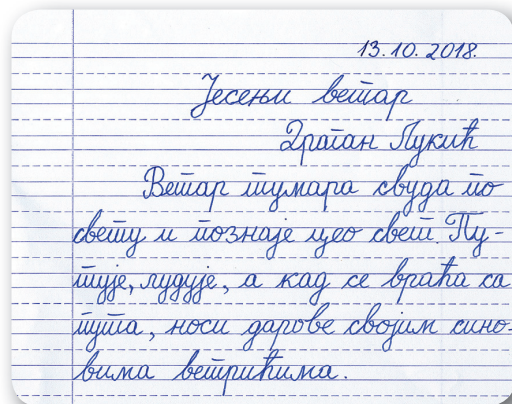 13.10.2018.
Јесењи ветар
Драган Лукић
Ветар тумара свуда по
свету и познаје цео свет. Пу-
тује, лудује, а кад се враћа са
пута, носи дарове својим сино-
вима ветрићима.